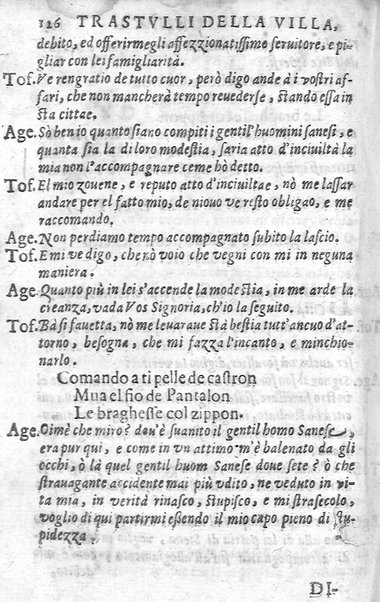 126 TRASTVLLI DELLA VILLA,
debito, ed offerirmegli affezzionatissimo seruitore, e pi-
gliar con lei famigliarità.
Tof. Ve rengratio de tutto cuor, però digo andè à i vostri af-
fari, che non mancherà tempo reuederse, stando essa in
sta cittae.
Age. Sò ben io quanto siano compiti i gentil'huomini sanesi, e
quanta sia la di loro modestia, saria atto d'inciuiltà la
mia non l'accompagnare come hò detto.
Tof. El mio zouene, e reputo atto d'inciuiltae, nò me lassar
andare per el fatto mio, de niouo ve resto obligao, e me
raccomando.
Age. Non perdiamo tempo accompagnato subito la lascio.
Tof. E mi ve digo, che nò voio che vegni con mi in neguna
maniera.
Age. Quanto più in lei s'accende la modestia, in me arde la
creanza, vada Vos Signoria, ch'io la seguito.
Tof. Bà si fauetta, nò me leuaraue stà bestia tutt'ancuo d'at-
torno, besogna, che mi fazza l'incanto, e minchio-
narlo.
Comando a ti pelle de castron
Mua el fio de Pantalon
Le braghesse col zippon.
Age. Oimè che miro? dou'è suanito il gentil homo Sanese,
era pur quì, e come in vn attimo m'è balenato da gli
occhi, ò là quel gentil huom Sanese doue sete? ò che
strauagante accidente mai più vdito, ne veduto in vi-
ta mia, in verità rinasco, stupisco, e mi strasecolo,
voglio di qui partirmi essendo il mio capo pieno di stu-
pidezza.
DI-